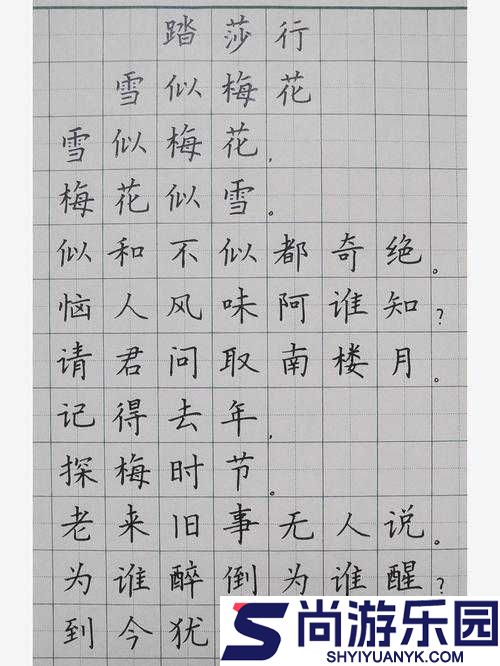 踏莎行
雪似梅花
雪似梅花,
梅花似雪。
似和不似都奇绝。
恼人风味阿谁知?
请君问取南楼月。
记得去年,
探梅时节。
老来旧事无人说。
为谁醉倒为谁醒?
到今犹
尚游乐园
SHYIYUANYK.COM